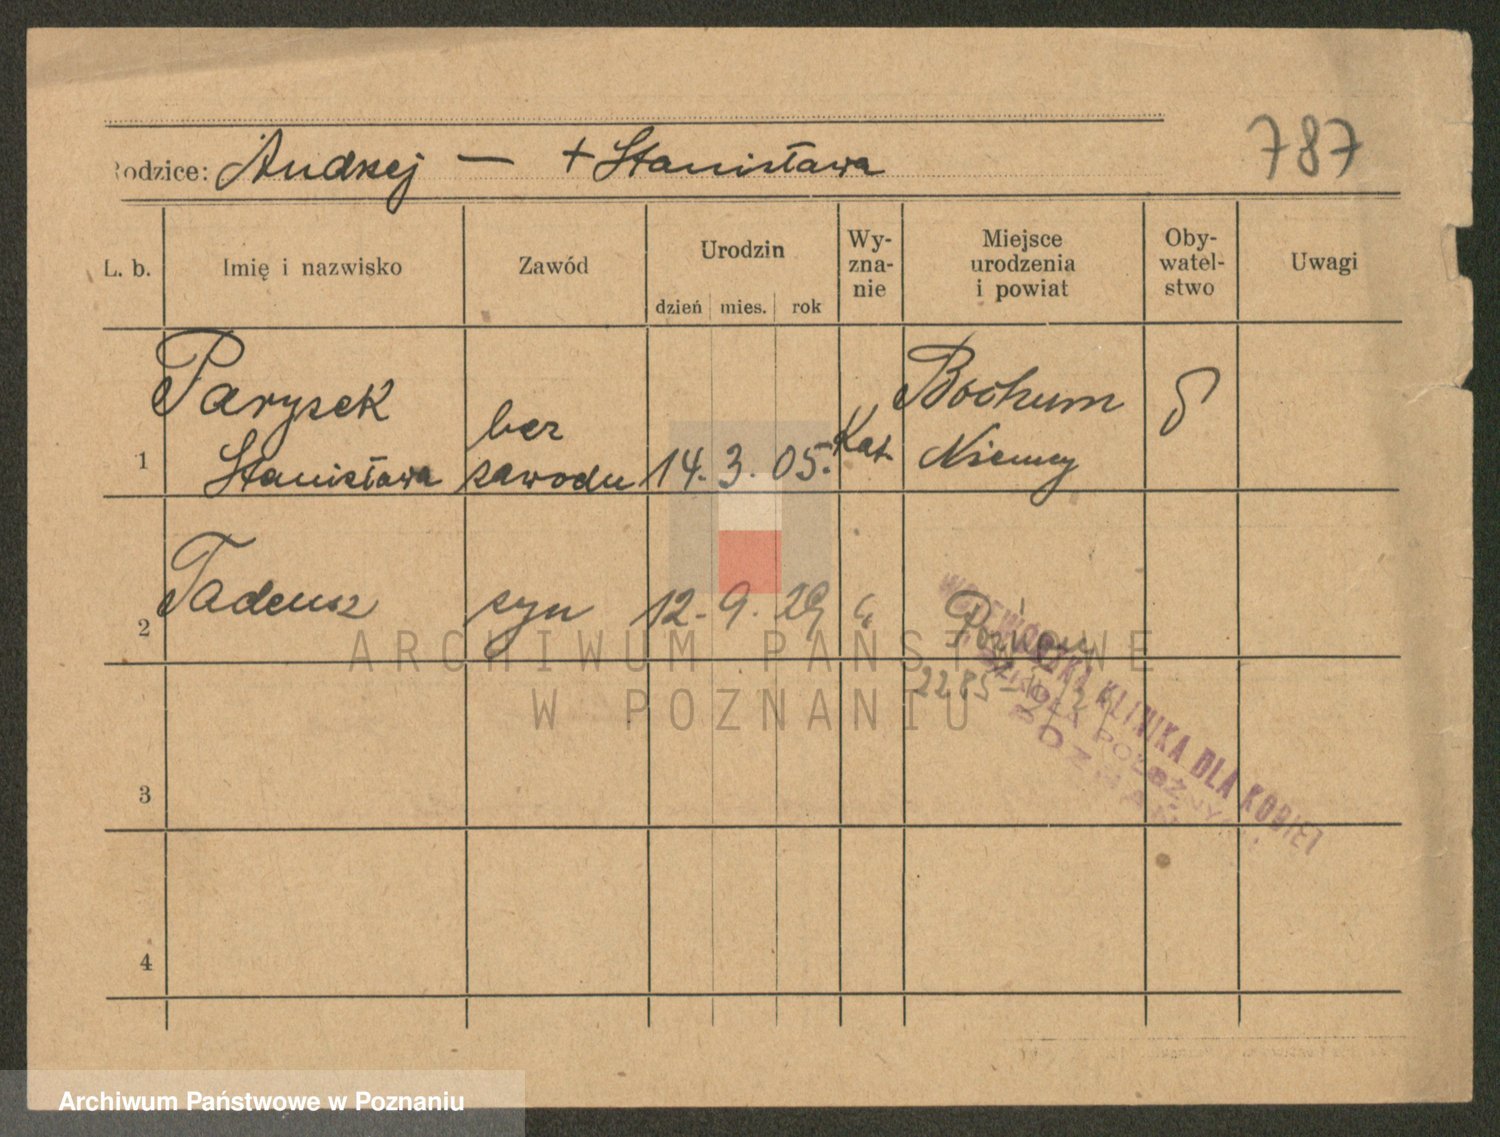 787
Rodzice: Andrzej — + Stanisława
L. b.
Imię i nazwisko
Zawód
Urodzin
dzień mies. rok
Wy-
zna-
nie
Miejsce
urodzenia
i powiat
Oby-
watel-
stwo
Uwagi
1
Parysek
Stanisława
bez
zawodu
14. 3. 05.
Kat.
Bochum
Niemcy
2
Tadeusz
syn
12. 9. 29
"
Poznań
2285
WOJEWÓDZKA KLINIKA DLA KOBIET
SZKOŁA POŁOŻNYCH
POZNAŃ
3
4
ARCHIWUM PAŃSTWOWE
W POZNANIU
Archiwum Państwowe w Poznaniu